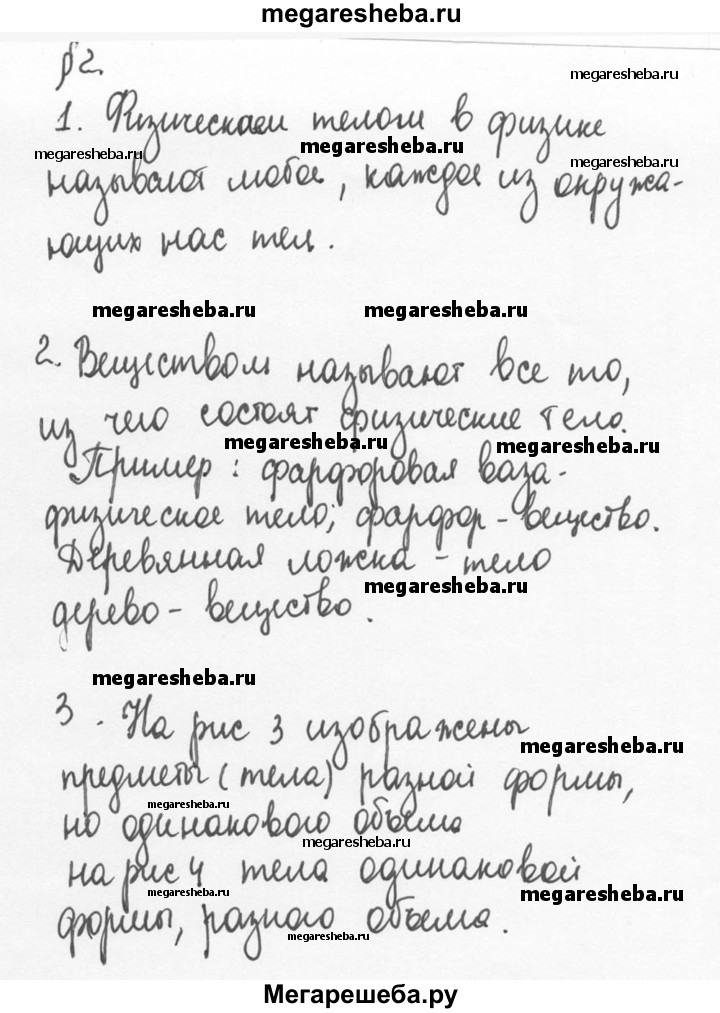 megaresheba.ru
§ 2.
megaresheba.ru
1. Физическаем телом в физике
megaresheba.ru megaresheba.ru megaresheba.ru
называют любое, каждое из окружа-
ющих нас тел.
megaresheba.ru megaresheba.ru
2. Веществом называют все то,
из чего состоят физические тело.
megaresheba.ru megaresheba.ru
Пример: фарфоровая ваза-
физическое тело; фарфор - вещество.
Деревянная ложка - тело
megaresheba.ru
дерево - вещество.
megaresheba.ru
3. На рис 3 изображены
megaresheba.ru
предметы (тела) разной формы,
megaresheba.ru
но одинакового объема
megaresheba.ru
на рис 4 тела одинаковой
megaresheba.ru megaresheba.ru
формы, разного объема.
megaresheba.ru
Мегарешеба.ру